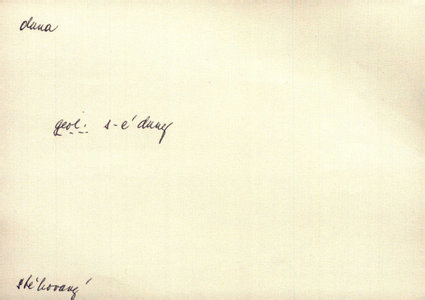 duna
geol. s-é duny
stěhovaný